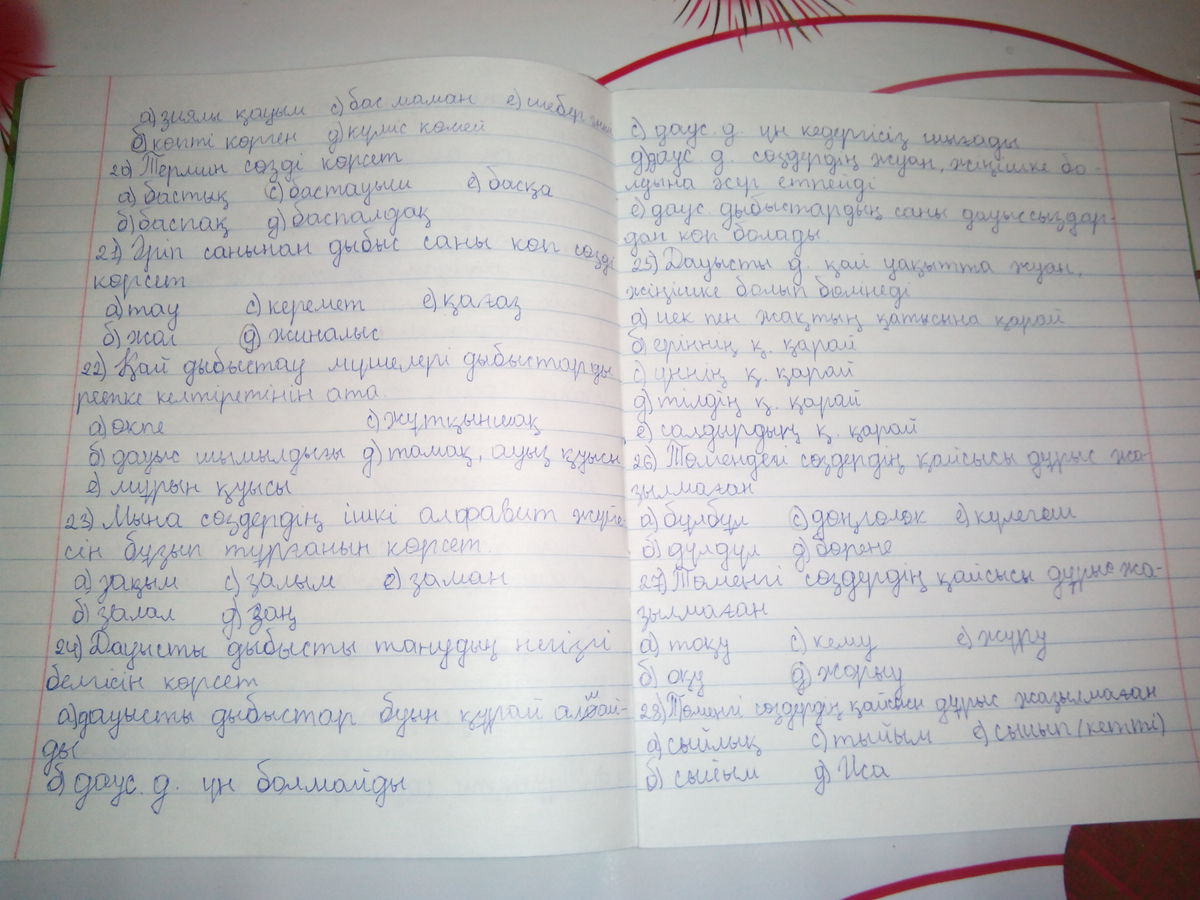 а) зиялы қауым с) бас маман е) шебер
б) көпті көрген д) күміс көмей
20) Термин сөзді көрсет
а) бастық с) бастауыш е) басқа
б) баспақ д) баспалдақ
21) Әріп санынан дыбыс саны көп сөзді
көрсет
а) тау с) керемет е) қағаз
б) жай д) жиналыс
22) Қай дыбыстау мүшелері дыбыстарды
ретке келтіретінін ата
а) өкпе с) жұтқыншақ
б) дауыс шымылдығы д) тамақ, ауыз қуысы
е) мұрын қуысы
23) Мына сөздердің ішкі алфавит жүйе
сін бұзып тұрғанын көрсет.
а) зақым с) залым е) заман
б) залал д) заң
24) Дауысты дыбысты танудың негізгі
белгісін көрсет
а) дауысты дыбыстар буын құрай алмай-
ды
б) даус. д. үн болмайды
с) даус. д. үн кедергісіз шығады
д) даус. д. сөздердің жуан, жіңішке бо-
лдына әсер етпейді
е) даус. дыбыстардың саны дауыссыздар-
дан көп болады.
25) Дауысты д. қай уақытта жуан,
жіңішке болып бөлінеді
а) иек пен жақтың қатысына қарай
б) еріннің қ. қарай
с) үннің қ. қарай
д) тілдің қ. қарай
е) салдырдың қ. қарай
26) Төмендегі сөздердің қайсысы дұрыс жа-
зылмаған
а) бұлбұл с) доңғолок е) күлегеш
б) дүлдүл д) бөрене
27) Төменгі сөздердің қайсысы дұрыс жа-
зылмаған
а) тоқу с) кему е) жүру
б) оқу д) жорыу
28) Төменгі сөздердің қайсысы дұрыс жазылмаған
а) сыйлық с) тыйым е) сыйып (кетті)
б) сыйым д) Иса